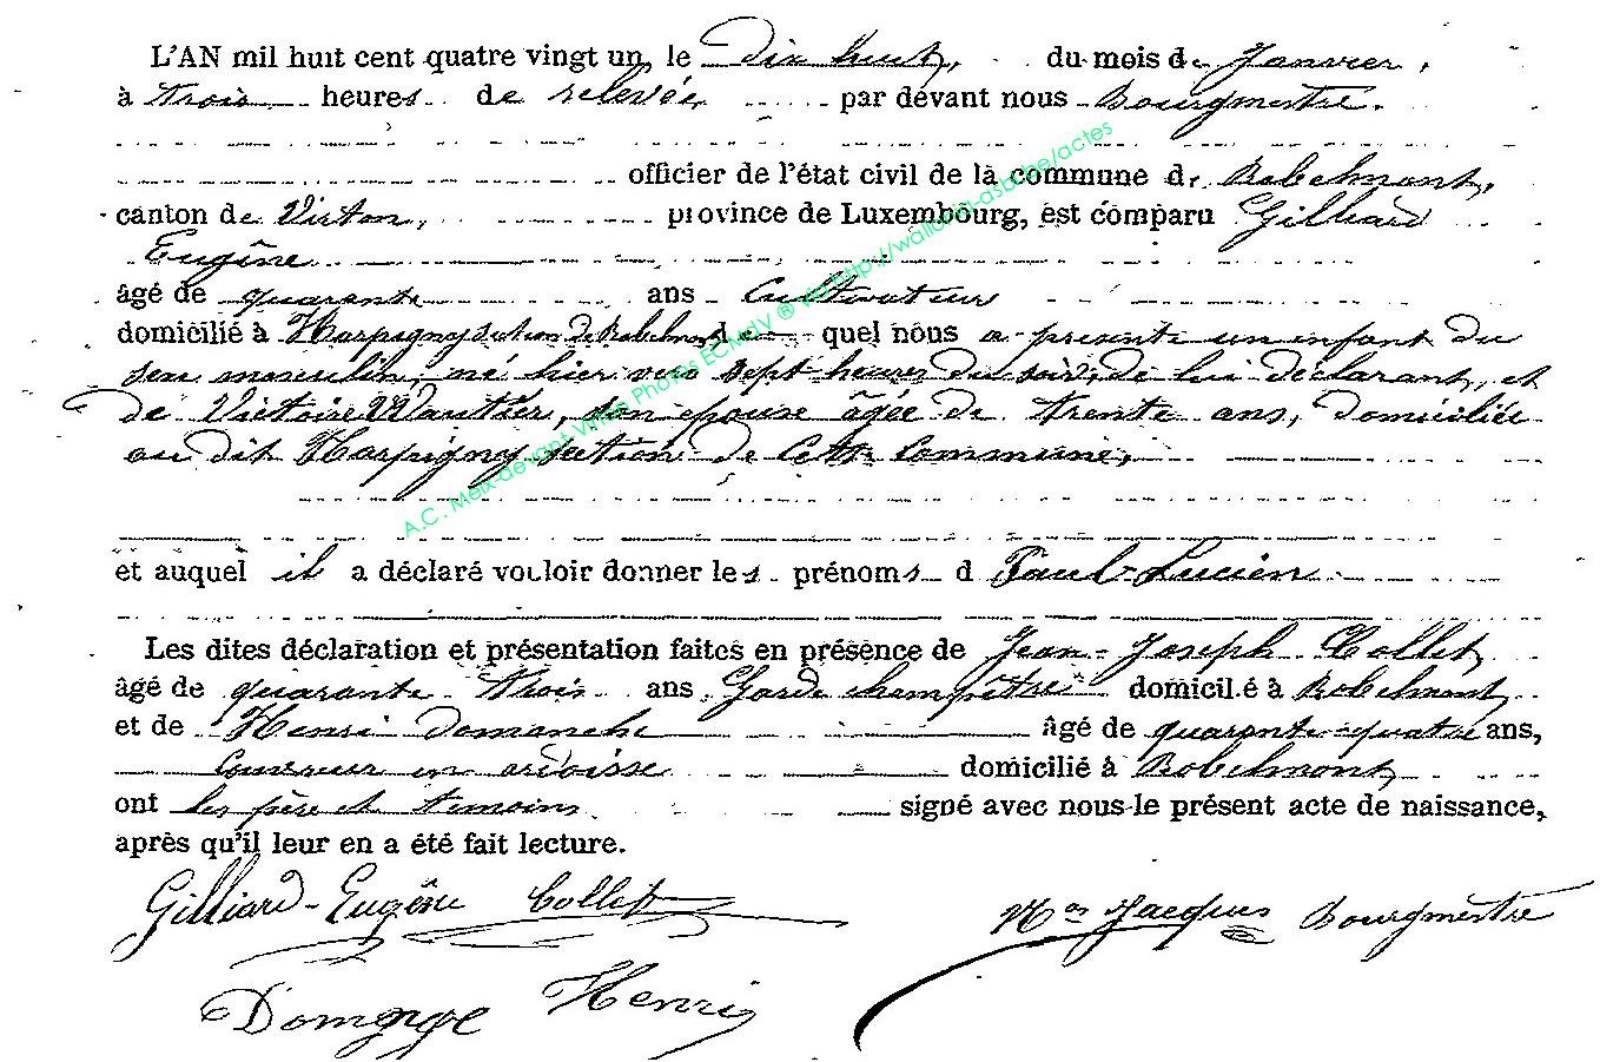 L'AN mil huit cent quatre vingt un, le Dix huit, du mois de Janvier,
à trois heures de relevée, par dévant nous Bourgmestre.
officier de l'état civil de la commune de Robelmont,
canton de Virton, province de Luxembourg, est comparu Gilliard
Eugêne
âgé de quarante ans Cultivateur
domicilié à Harpigny section de Robelmont, quel nous a présenté un enfant du
sexe masculin, né hier vers sept heures du soir, de lui déclarant, et
de Victoire Wauthier, son épouse âgée de trente ans, domiciliée
au dit Harpigny section de Cette Commune,
et auquel il a déclaré vouloir donner les prénoms d Paul-Lucien
Les dites déclaration et présentation faites en présence de Jean-Joseph Collet,
âgé de quarante trois ans Garde champêtre domicilié à Robelmont,
et de Henri Domanche âgé de quarante-quatre ans,
Couvreur en ardoisse domicilié à Robelmont,
ont les père et témoins signé avec nous le présent acte de naissance,
après qu'il leur en a été fait lecture.
Gilliard-Eugêne Collet Jacques Bourgmestre
Henri
A.C. Meix-devant-Virton Photos ECMdV ® Via http://wallonia-asbl.be/actes